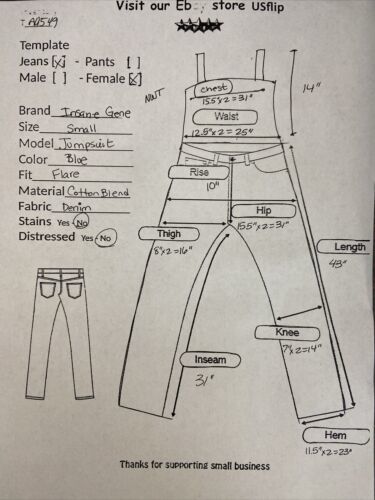 Visit our Eb store USflip
Template
Jeans [x] - Pants [ ]
Male [ ] - Female [x]
NWT
Brand Insane Gene
Size Small
Model Jumpsuit
Color Blue
Fit Flare
Material Cotton Blend
Fabric Denim
Stains Yes - No
Distressed Yes - No
chest
15.5"x2=31"
14"
Waist
12.5"x2=25"
Rise
10"
Hip
15.5"x2=31"
Thigh
8"x2=16"
Length
43"
Knee
7"x2=14"
Inseam
31"
Hem
11.5"x2=23"
Thanks for supporting small business